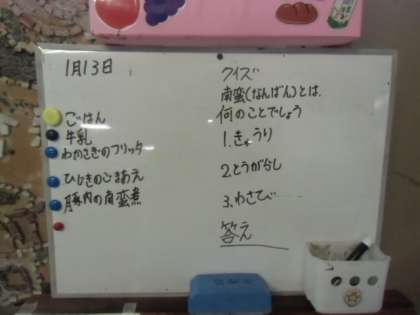 1月13日
ごはん
牛乳
わかさぎのフリッター
ひじきのごまあえ
豚肉の南蛮煮
クイズ
南蛮(なんばん)とは、
何のことでしょう
1.きゅうり
2.とうがらし
3.わさび
答え